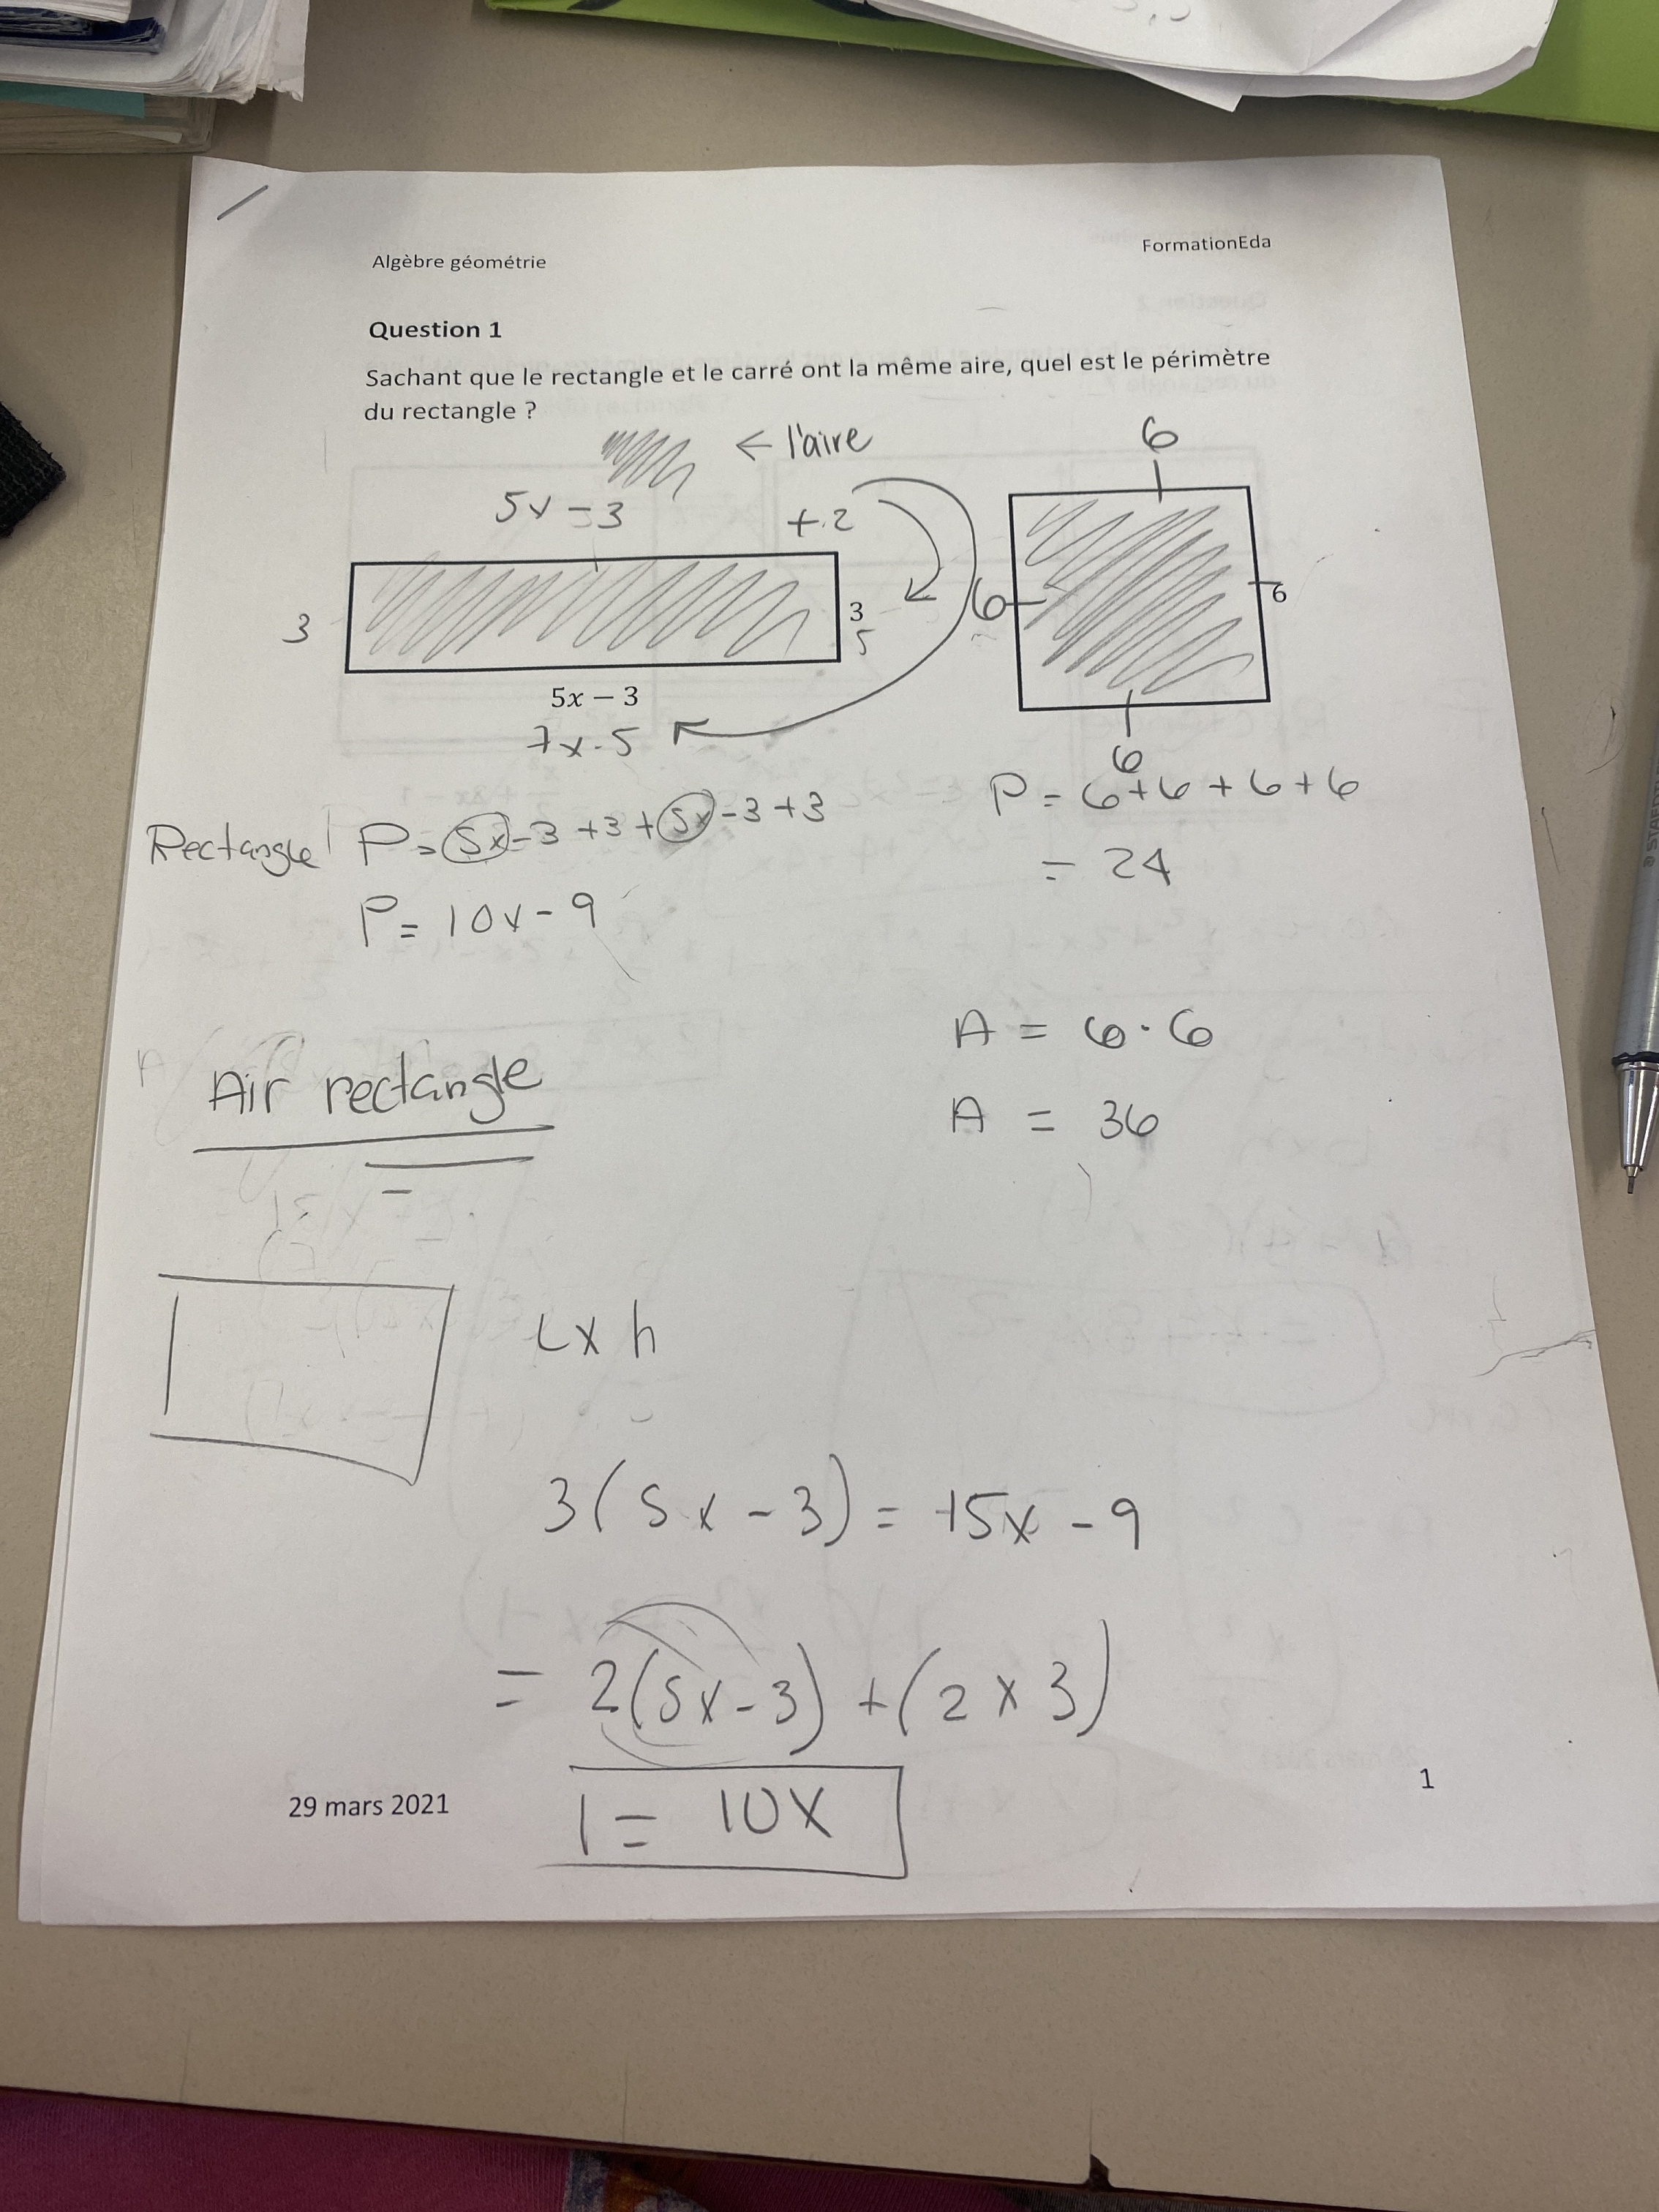 Algèbre géométrie
FormationEda
Question 1
Sachant que le rectangle et le carré ont la même aire, quel est le périmètre
du rectangle ?
← l'aire
5x - 3
+ 2
6
3
3
5
6
6
5x − 3
7x - 5
6
Rectangle P = 5x - 3 + 3 + 5x - 3 + 3
P = 10x - 9
P = 6 + 6 + 6 + 6
= 24
A = 6 · 6
A = 36
Air rectangle
L x h
3(5x - 3) = 15x - 9
= 2(5x - 3) + (2 x 3)
= 10x
29 mars 2021
1